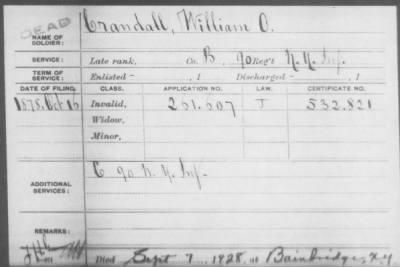 DEAD
NAME OF SOLDIER: Crandall, William O.
SERVICE: Late rank, Co. B, 90 Reg't N.Y. Inf.
TERM OF SERVICE: Enlisted – , 1 Discharged – , 1
DATE OF FILING. CLASS. APPLICATION NO. LAW. CERTIFICATE NO.
1878. Oct 16 Invalid, 251.607 J 532.821
Widow,
Minor,
ADDITIONAL SERVICES: C 90 N.Y. Inf.
REMARKS:
Died Sept 7, 1928, at Bainbridge, N.Y.